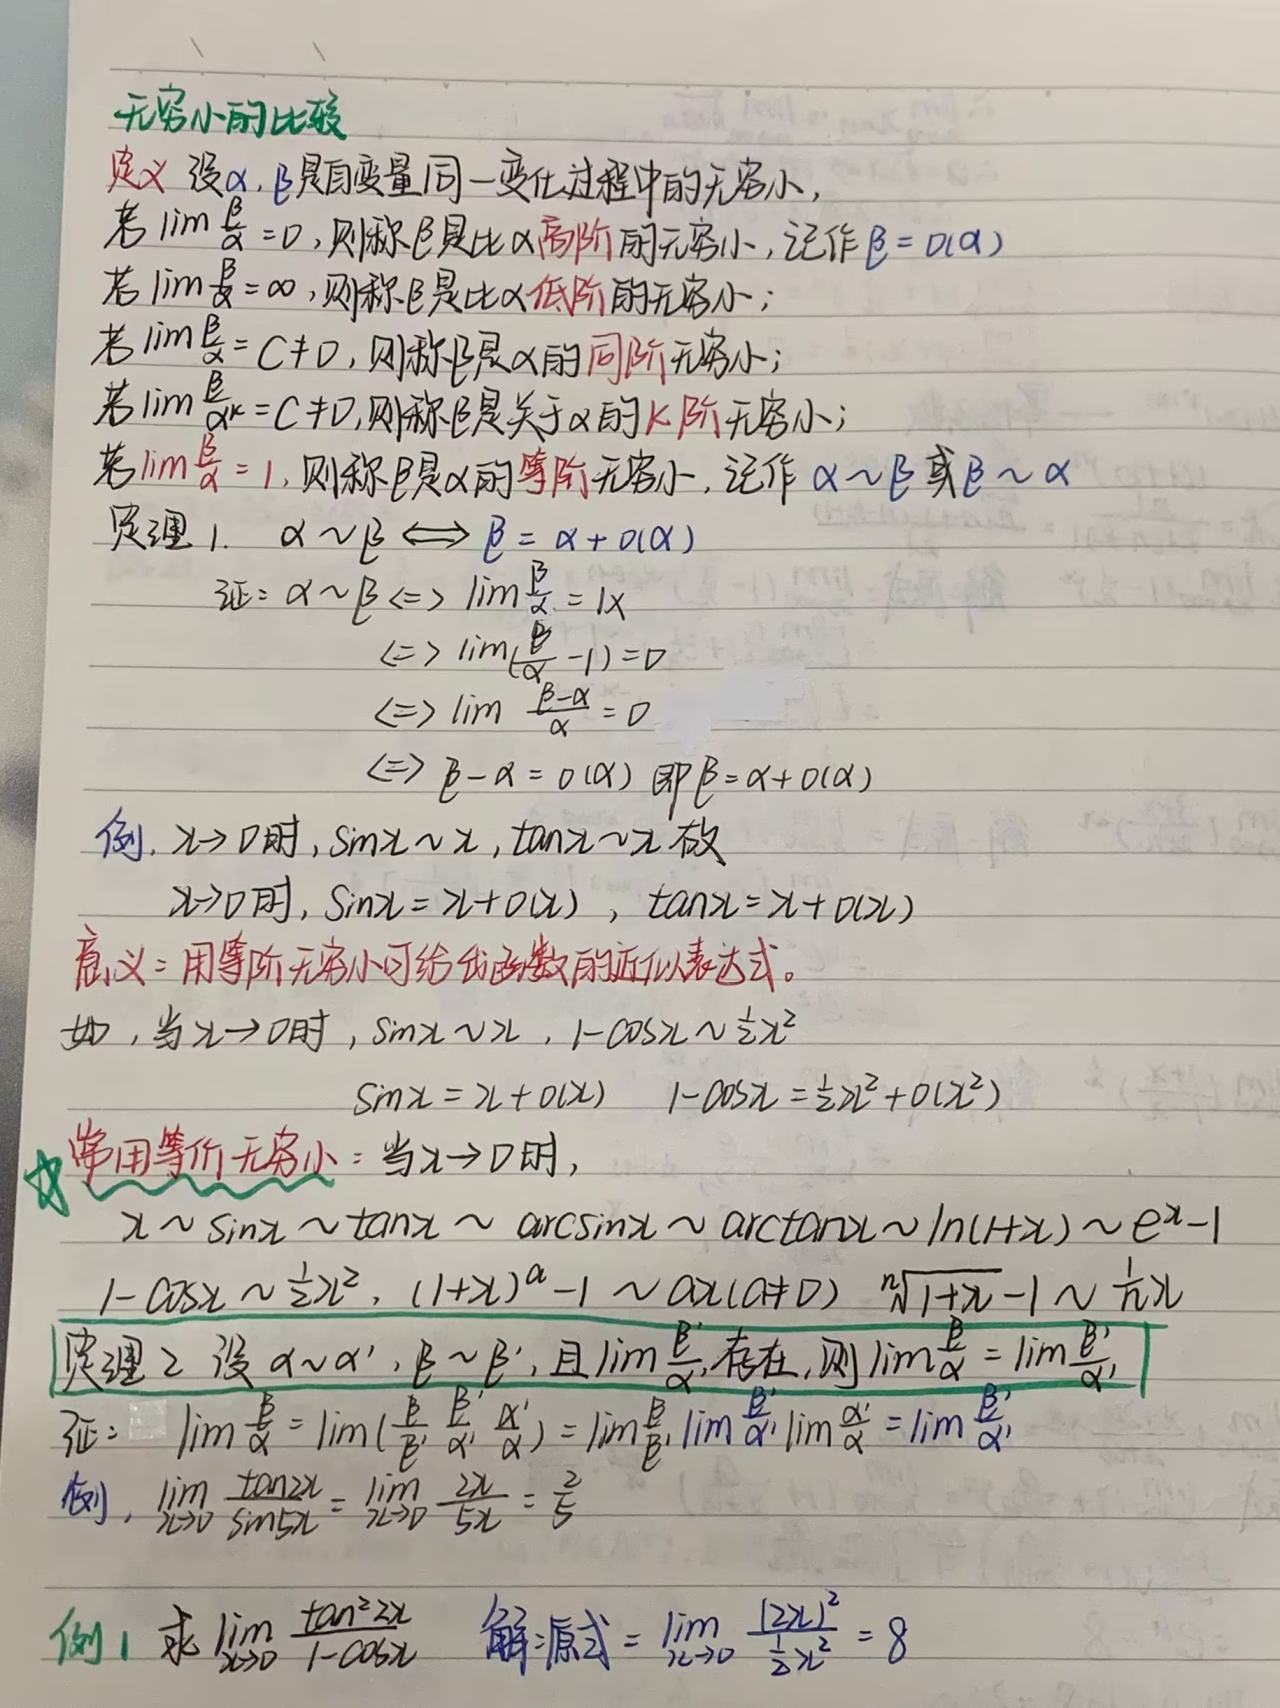 无穷小的比较
定义 设α,β是自变量同一变化过程中的无穷小,
若 lim β/α = 0, 则称β是比α高阶的无穷小, 记作 β = o(α)
若 lim β/α = ∞, 则称β是比α低阶的无穷小;
若 lim β/α = C ≠ 0, 则称β是α的同阶无穷小;
若 lim β/α^k = C ≠ 0, 则称β是关于α的k阶无穷小;
若 lim β/α = 1, 则称β是α的等阶无穷小, 记作 α ~ β 或 β ~ α
定理 1. α ~ β ⟺ β = α + o(α)
证: α ~ β <=> lim β/α = 1x
<=> lim(β/α - 1) = 0
<=> lim (β-α)/α = 0
<=> β - α = o(α) 即 β = α + o(α)
例. x→0时, sinx ~ x, tanx ~ x 故
x→0时, sinx = x + o(x), tanx = x + o(x)
意义: 用等阶无穷小可给出函数的近似表达式。
如, 当x→0时, sinx ~ x, 1-cosx ~ ½x²
sinx = x + o(x) 1-cosx = ½x² + o(x²)
常用等价无穷小: 当x→0时,
x ~ sinx ~ tanx ~ arcsinx ~ arctanx ~ ln(1+x) ~ e^x - 1
1-cosx ~ ½x², (1+x)^a - 1 ~ ax(a≠0) ⁿ√(1+x) - 1 ~ 1/n x
定理 2 设 α~α', β~β', 且 lim β'/α' 存在, 则 lim β/α = lim β'/α'
证: lim β/α = lim(β/β' β'/α' α'/α) = lim β/β' lim β'/α' lim α'/α = lim β'/α'
例, lim x→0 tan2x/sin5x = lim x→0 2x/5x = 2/5
例1 求 lim x→0 tan²2x/(1-cosx) 解:原式 = lim x→0 (2x)²/(½x²) = 8